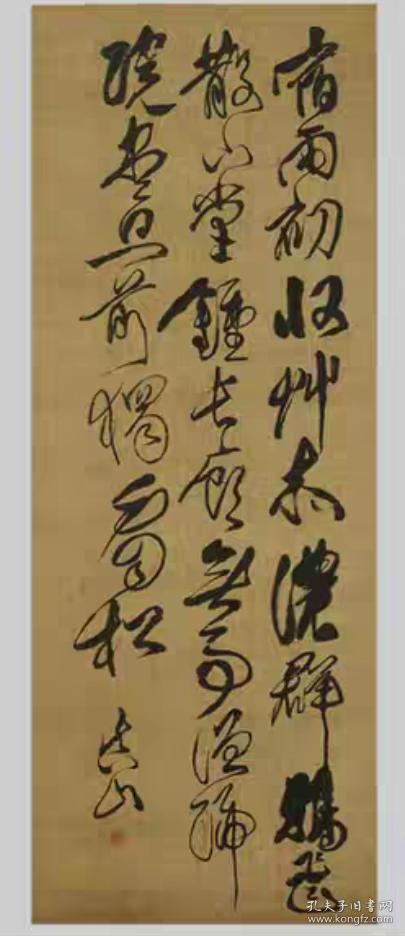 宿雨初收艸木濃群鴉飛
散下堂鐘長廊無事僧歸
院盡日門前獨看松
真山
孔夫子旧书网
www.kongfz.com